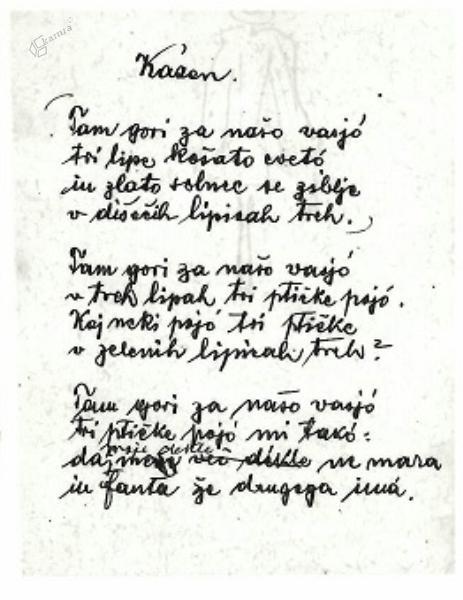 kamra
Kásen.
Tam gori za našo vasjó
tri lipe košato cvetó
in zlato solnce se ziblje
v dišečih lipicah treh.
Tam gori za našo vasjó
v treh lipah tri ptičke pojó.
Kaj neki pojó tri ptičke
v zelenih lipicah treh?
Tam gori za našo vasjó
tri ptičke pojó mi takó:
moje dekle
da več dekle ne mara
in fanta že drugega imá.